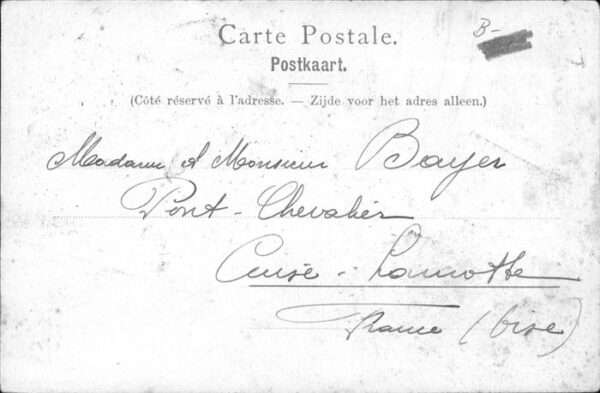 B-
Carte Postale.
Postkaart.
(Côté réservé à l'adresse. — Zijde voor het adres alleen.)
Madame et Monsieur Bayer
Pont-Chevalier
Cuise-Lamotte
France (Oise)